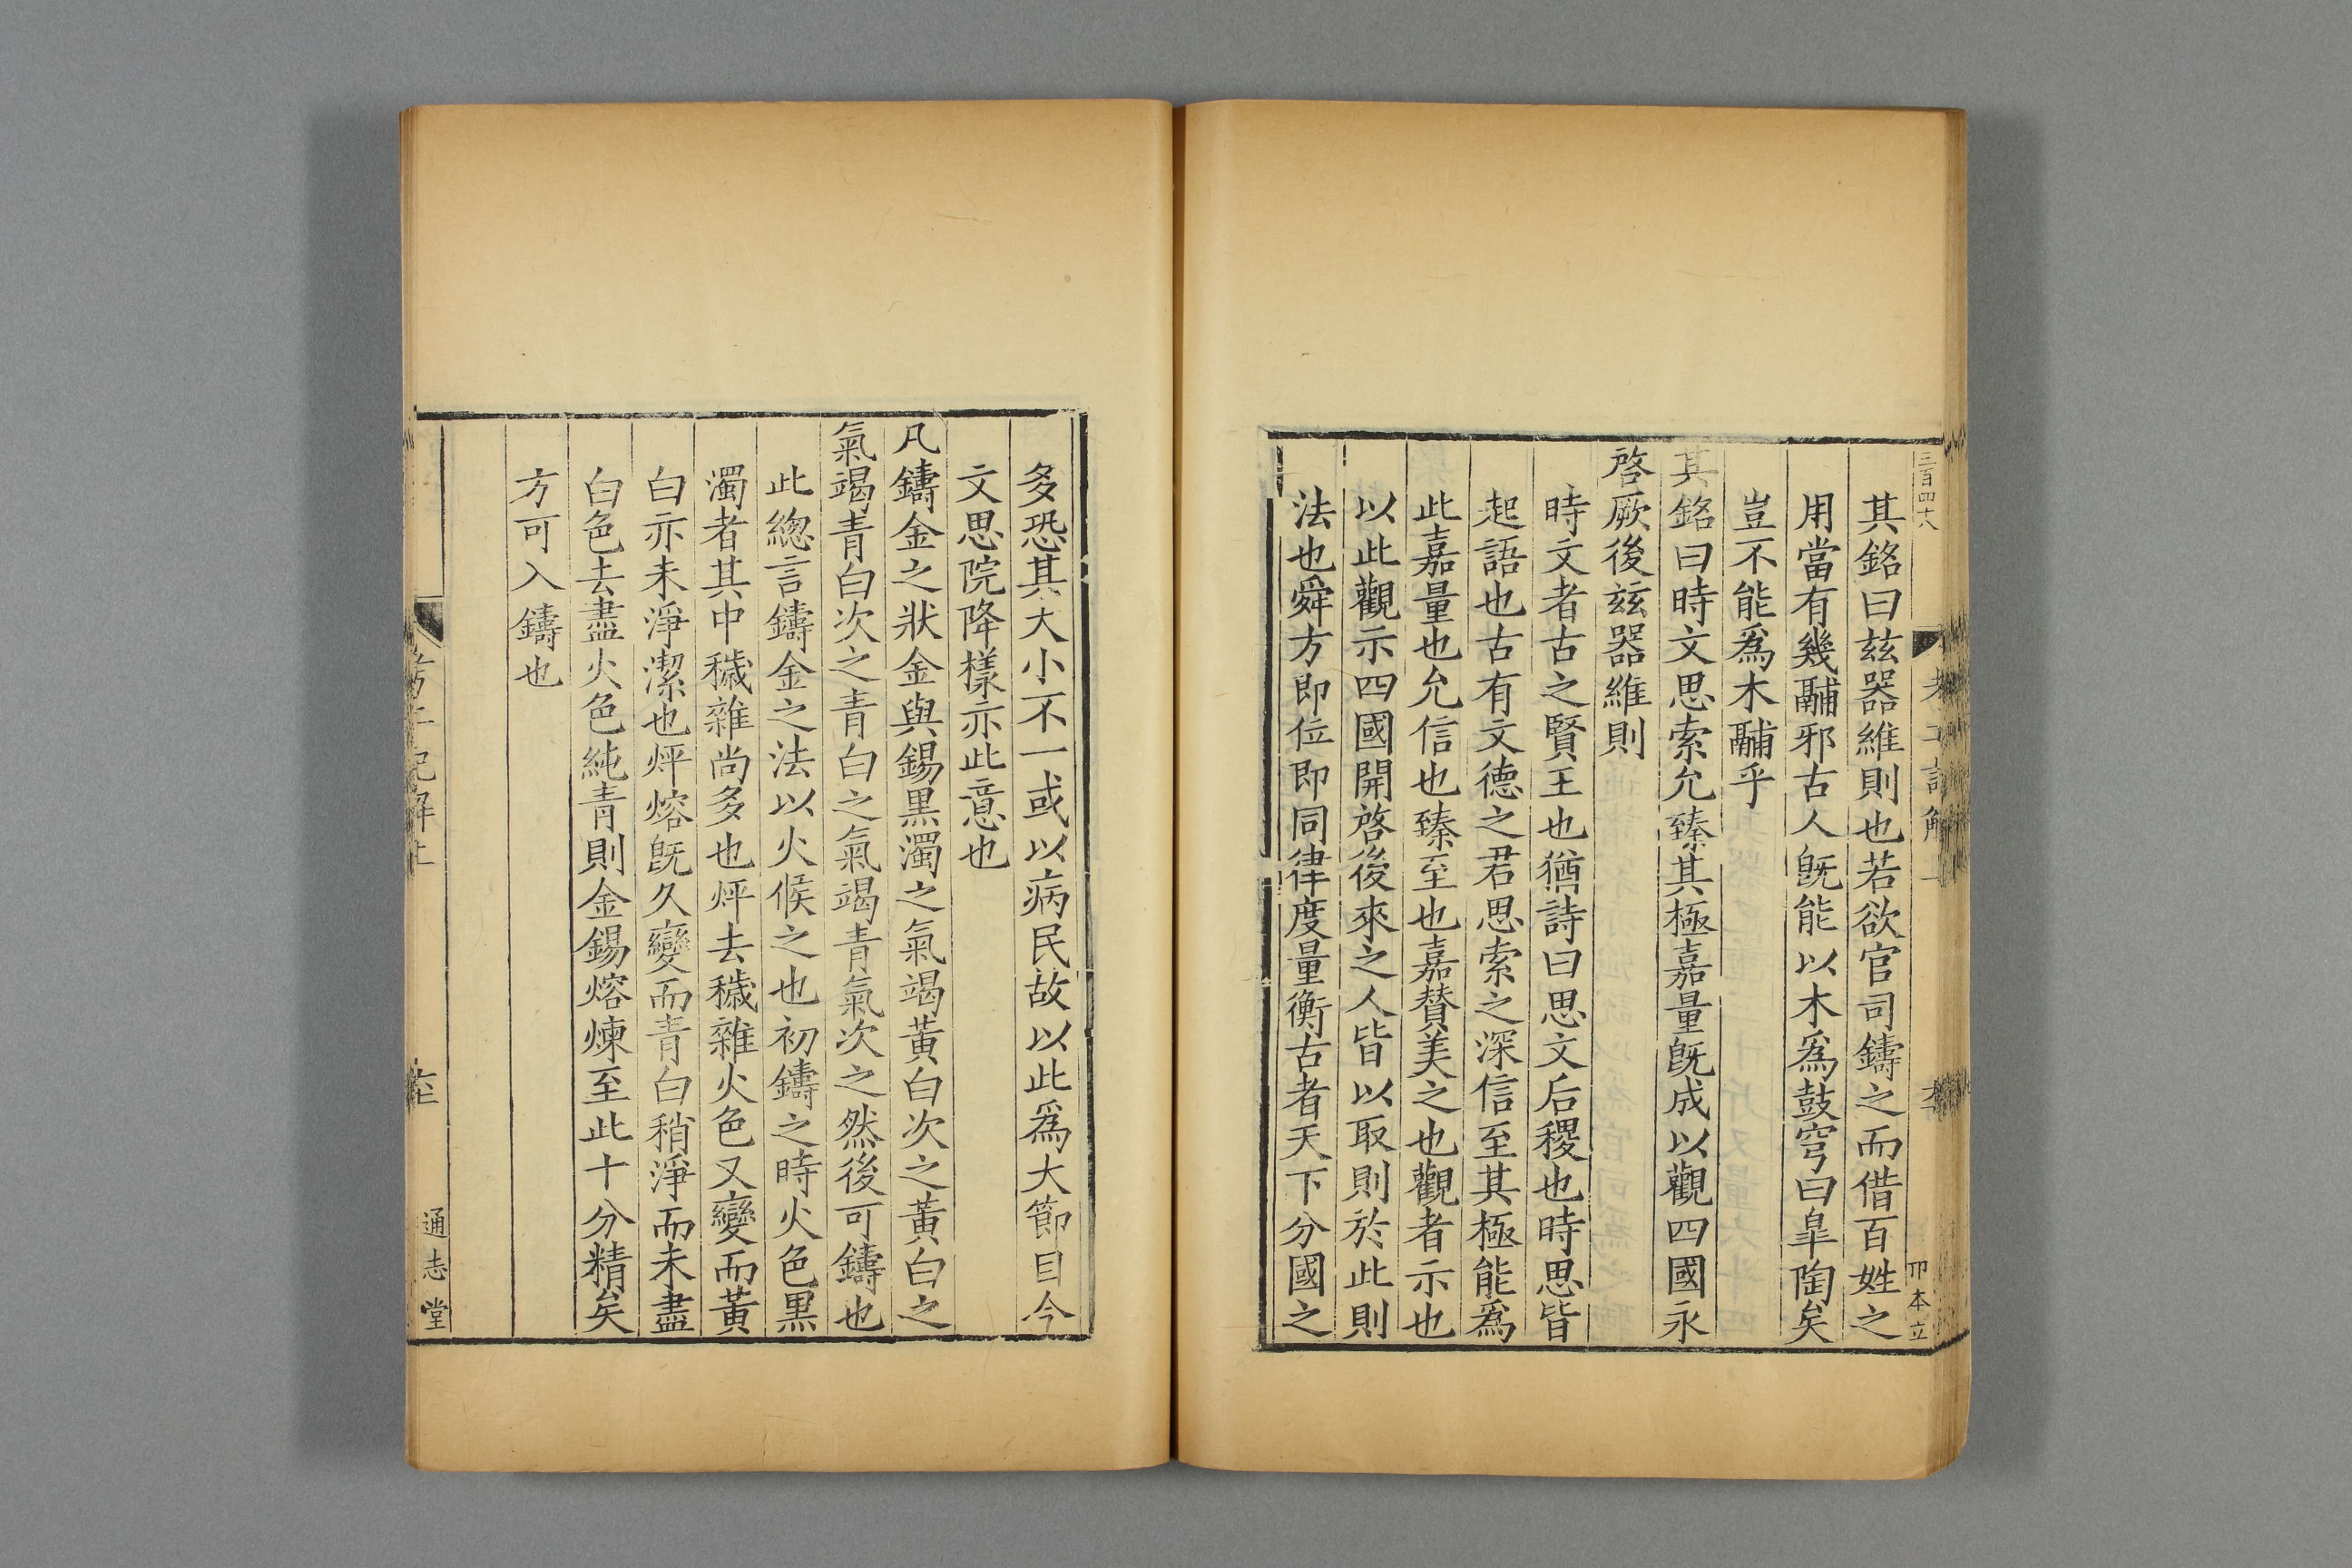 三百四十八
其銘曰玆器維則也若欲官司鑄之而借百姓之
用當有幾鬴邪古人旣能以木爲鼓穹曰臯陶矣
豈不能爲木鬴乎
其銘曰時文思索允臻其極嘉量旣成以觀四國永
啓厥後玆器維則
時文者古之賢王也猶詩曰思文后稷也時思皆
起語也古有文德之君思索之深信至其極能爲
此嘉量也允信也臻至也嘉賛美之也觀者示也
以此觀示四國開啓後來之人皆以取則於此則
法也舜方即位即同律度量衡古者天下分國之
多恐其大小不一或以病民故以此爲大節目今
文思院降樣亦此意也
凡鑄金之狀金與錫黑濁之氣竭黃白次之黃白之
氣竭靑白次之靑白之氣竭靑氣次之然後可鑄也
此總言鑄金之法以火候之也初鑄之時火色黑
濁者其中穢雜尚多也烀去穢雜火色又變而黃
白亦未淨潔也烀熔旣久變而靑白稍淨而未盡
白色去盡火色純靑則金錫熔煉至此十分精矣
方可入鑄也
考工記解上
通志堂